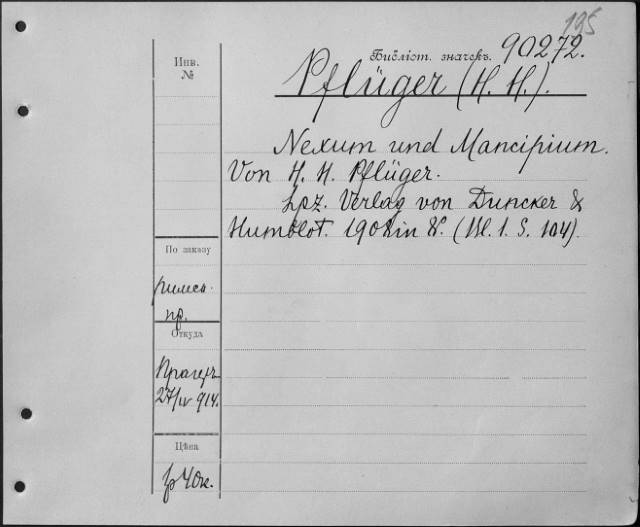 195
Библіот. значекъ. 90272.
Инв.
№
Pflüger (H. H.).
Nexum und Mancipium.
Von H. H. Pflüger.
Lpz. Verlag von Duncker &
Humblot. 1908 in 8°. (Bl. 1. S. 104).
По заказу
римск.
пр.
Откуда
Прагеръ
27/IV 914.
Цѣна
р 40к.